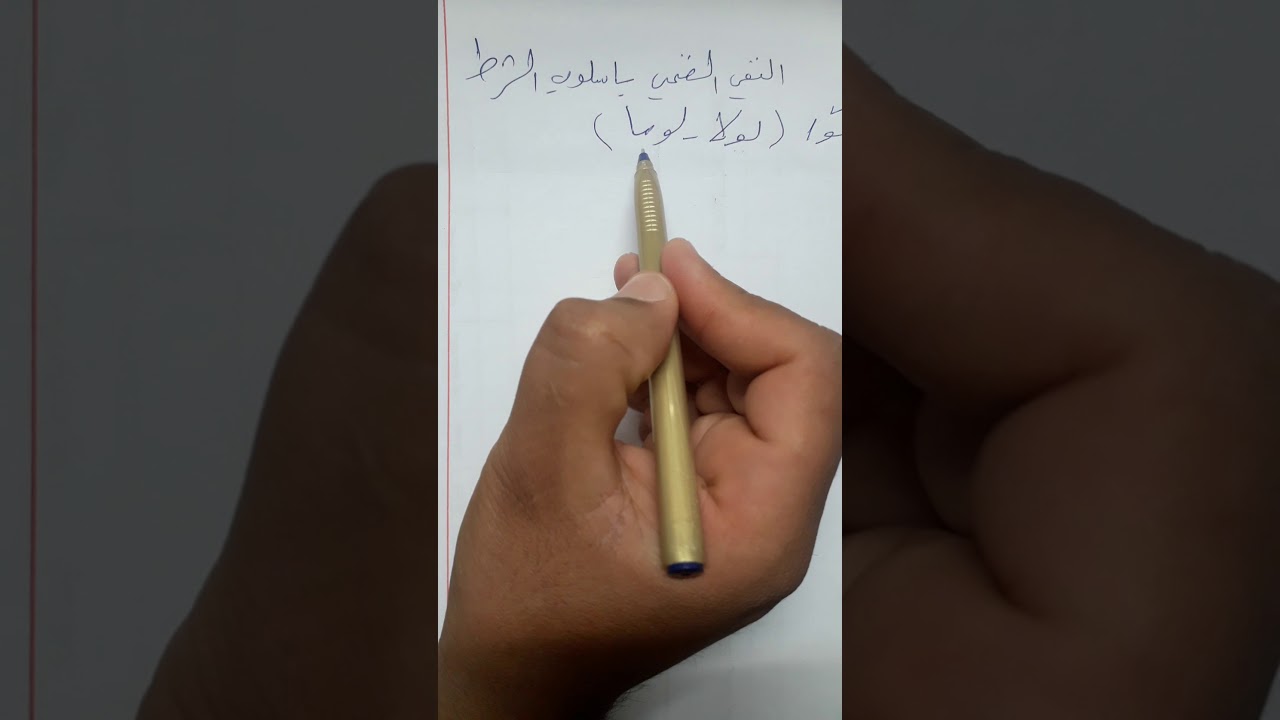 النفي الضمني باسلوب الشرط
(لولا - لوما)